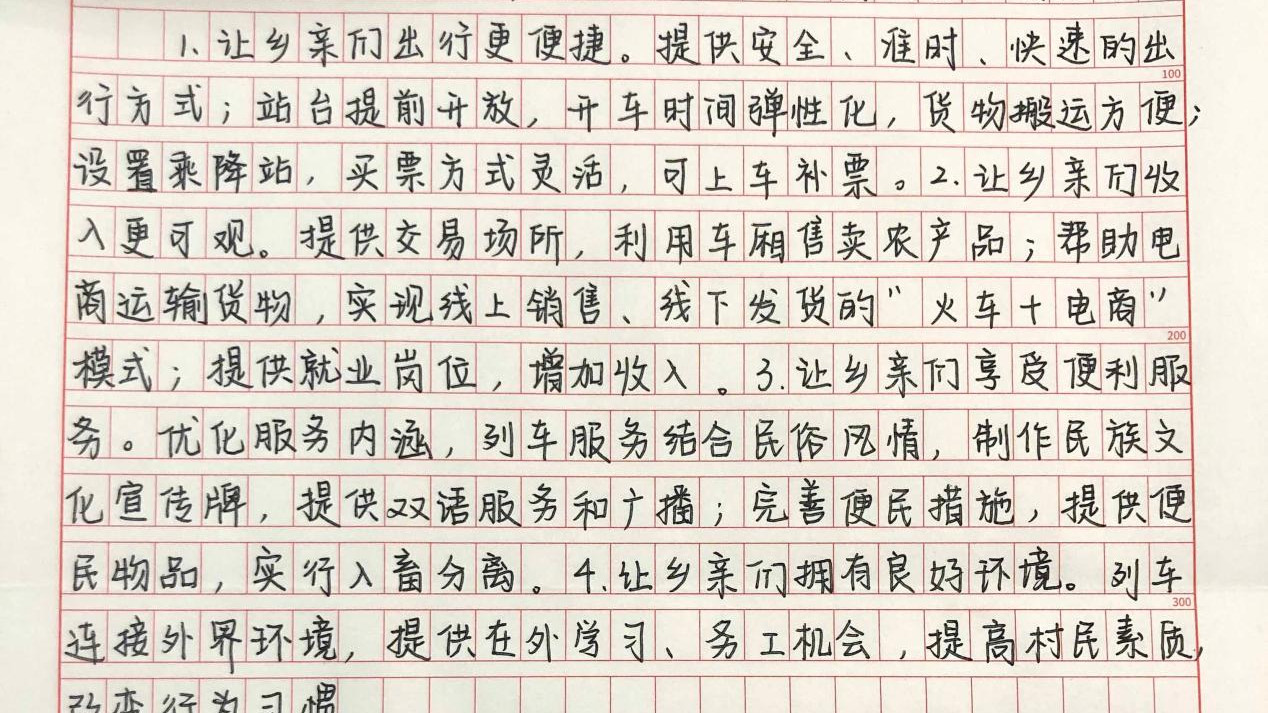 1.让乡亲们出行更便捷。提供安全、准时、快速的出
100
行方式；站台提前开放，开车时间弹性化，货物搬运方便；
设置乘降站，买票方式灵活，可上车补票。2.让乡亲们收
入更可观。提供交易场所，利用车厢售卖农产品；帮助电
商运输货物，实现线上销售、线下发货的“火车+电商”
200
模式；提供就业岗位，增加收入。3.让乡亲们享受便利服
务。优化服务内涵，列车服务结合民俗风情，制作民族文
化宣传牌，提供双语服务和广播；完善便民措施，提供便
民物品，实行人畜分离。4.让乡亲们拥有良好环境。列车
300
连接外界环境，提供在外学习、务工机会，提高村民素质，
改变行为习惯